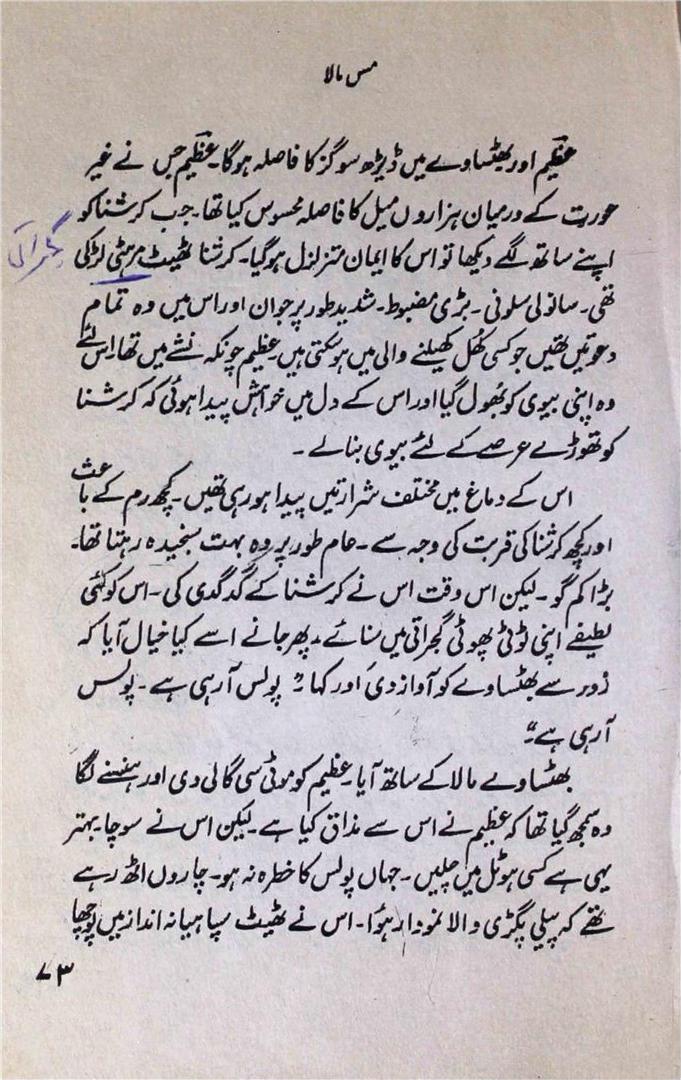 مس مالا
عظیم اور بھٹساوے میں ڈیڑھ سو گز کا فاصلہ ہوگا۔ عظیم جس نے غیر
عورت کے درمیان ہزاروں میل کا فاصلہ محسوس کیا تھا۔ جب کرشنا کو
اپنے ساتھ لگے دیکھا تو اس کا ایمان متزلزل ہوگیا۔ کرشنا ٹھیٹ مرہٹی لڑکی
تھی۔ سانولی سلونی۔ بڑی مضبوط۔ شدید طور پر جوان اور اس میں وہ تمام
دعوتیں تھیں جو کسی کُھل کھیلنے والی میں ہوسکتی ہیں۔ عظیم چونکہ نشے میں تھا، اس لئے
وہ اپنی بیوی کو بُھول گیا اور اس کے دل میں خواہش پیدا ہوئی کہ کرشنا
کو تھوڑے عرصے کے لئے بیوی بنالے۔
اس کے دماغ میں مختلف شرارتیں پیدا ہورہی تھیں۔ کچھ رم کے باعث
اور کچھ کرشنا کی قربت کی وجہ سے۔ عام طور پر وہ بہت سنجیدہ رہتا تھا۔
بڑا کم گو۔ لیکن اس وقت اس نے کرشنا کے گدگدی کی۔ اس کو کئی
لطیفے اپنی ٹوٹی پھوٹی گجراتی میں سنائے۔ پھر جانے اسے کیا خیال آیا کہ
زور سے بھٹساوے کو آواز دی اور کہا "پولس آرہی ہے۔ پولس
آرہی ہے"
بھٹساوے مالا کے ساتھ آیا۔ عظیم کو موٹی سی گالی دی اور ہنسنے لگا
وہ سمجھ گیا تھا کہ عظیم نے اس سے مذاق کیا ہے۔ لیکن اس نے سوچا۔ بہتر
یہی ہے کسی ہوٹل میں چلیں۔ جہاں پولس کا خطرہ نہ ہو۔ چاروں اٹھ رہے
تھے کہ پیلی پگڑی والا نمودار ہوُا۔ اس نے ٹھیٹ سپاہیانہ انداز میں پوچھا
۷۳